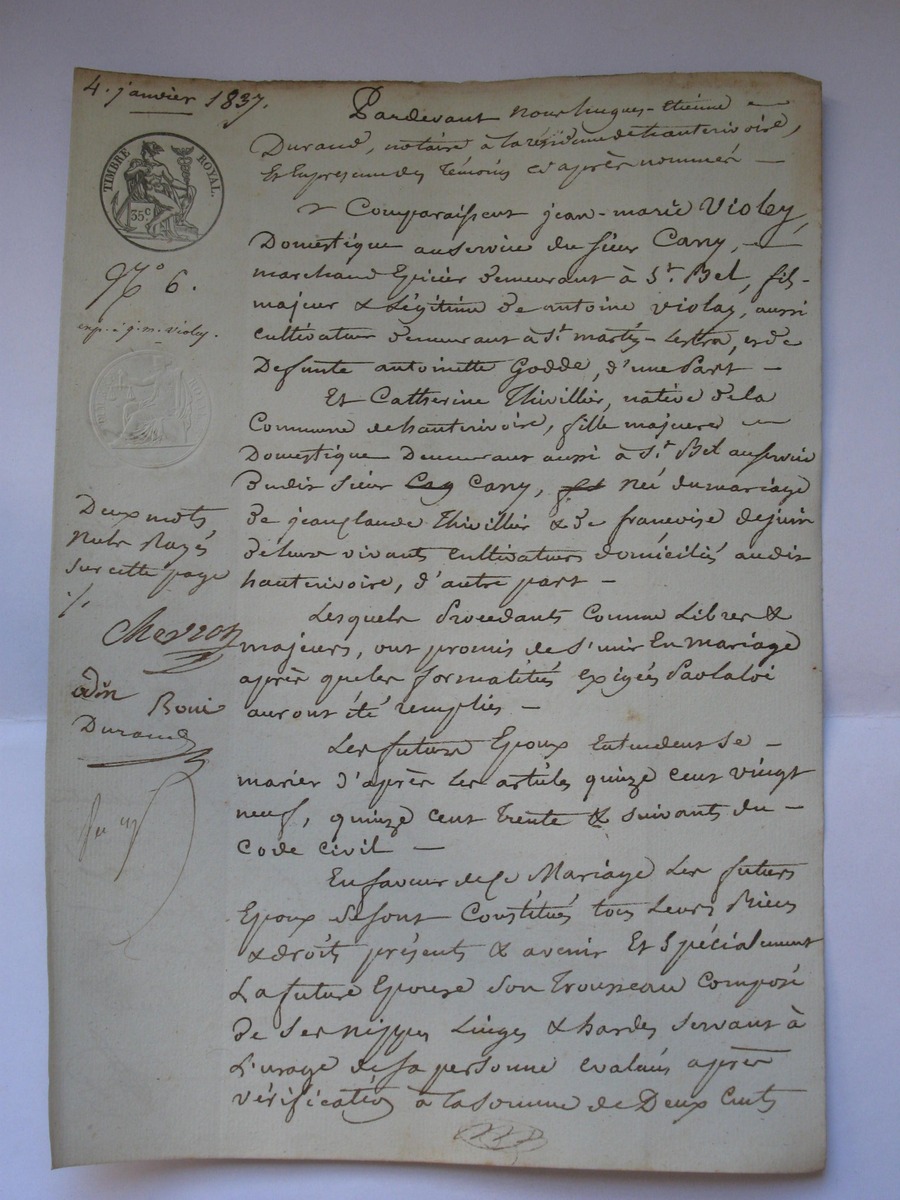 4. janvier 1837.
TIMBRE ROYAL.
35c
N° 6.
exp. à j. m. violay.
Deux mots
nuls rayés
sur cette page
./.
Durand
Pardevant nous hugues-étiénne
Durand, notaire à la résidence de hauterivoire,
Et En présence des témoins cy après nommés —
Comparaissent jean-marie Violay,
Domestique au service du sieur Cany, —
marchand épicier demeurant à St. Bel, fils
majeur & légitime de antoine violay, aussi
cultivateur demeurant à St martin-Lestra, et de
Defunte antoinette Godde, d'une part —
Et Catherine Thivillier, native de la
Commune de hauterivoire, fille majeure —
Domestique Demeurant aussi à St. Bel au service
Dudit sieur Cany, née du mariage
de jean claude Thivillier & de francoise dejuin
de leur vivants cultivateurs domiciliés audit
hauterivoire, d'autre part —
Lesquels procédants comme Libres &
majeurs, ont promis de s'unir En mariage
après que les formalités exigées par la loi
auront été remplies —
Les future Epoux Entendent se —
marier d'après les articles quinze cent vingt
neuf, quinze cent trente & suivants du —
Code civil —
En faveur de ce Mariage Les futurs
Epoux se sont Constitués tous Leurs Biens
& droits présents & avenir Et Spécialement
La future Epouse son Trousseau Composé
de ses nippes Linges & hardes servant à
L'usage de sa personne evalués après
vérification à la somme de Deux Cents